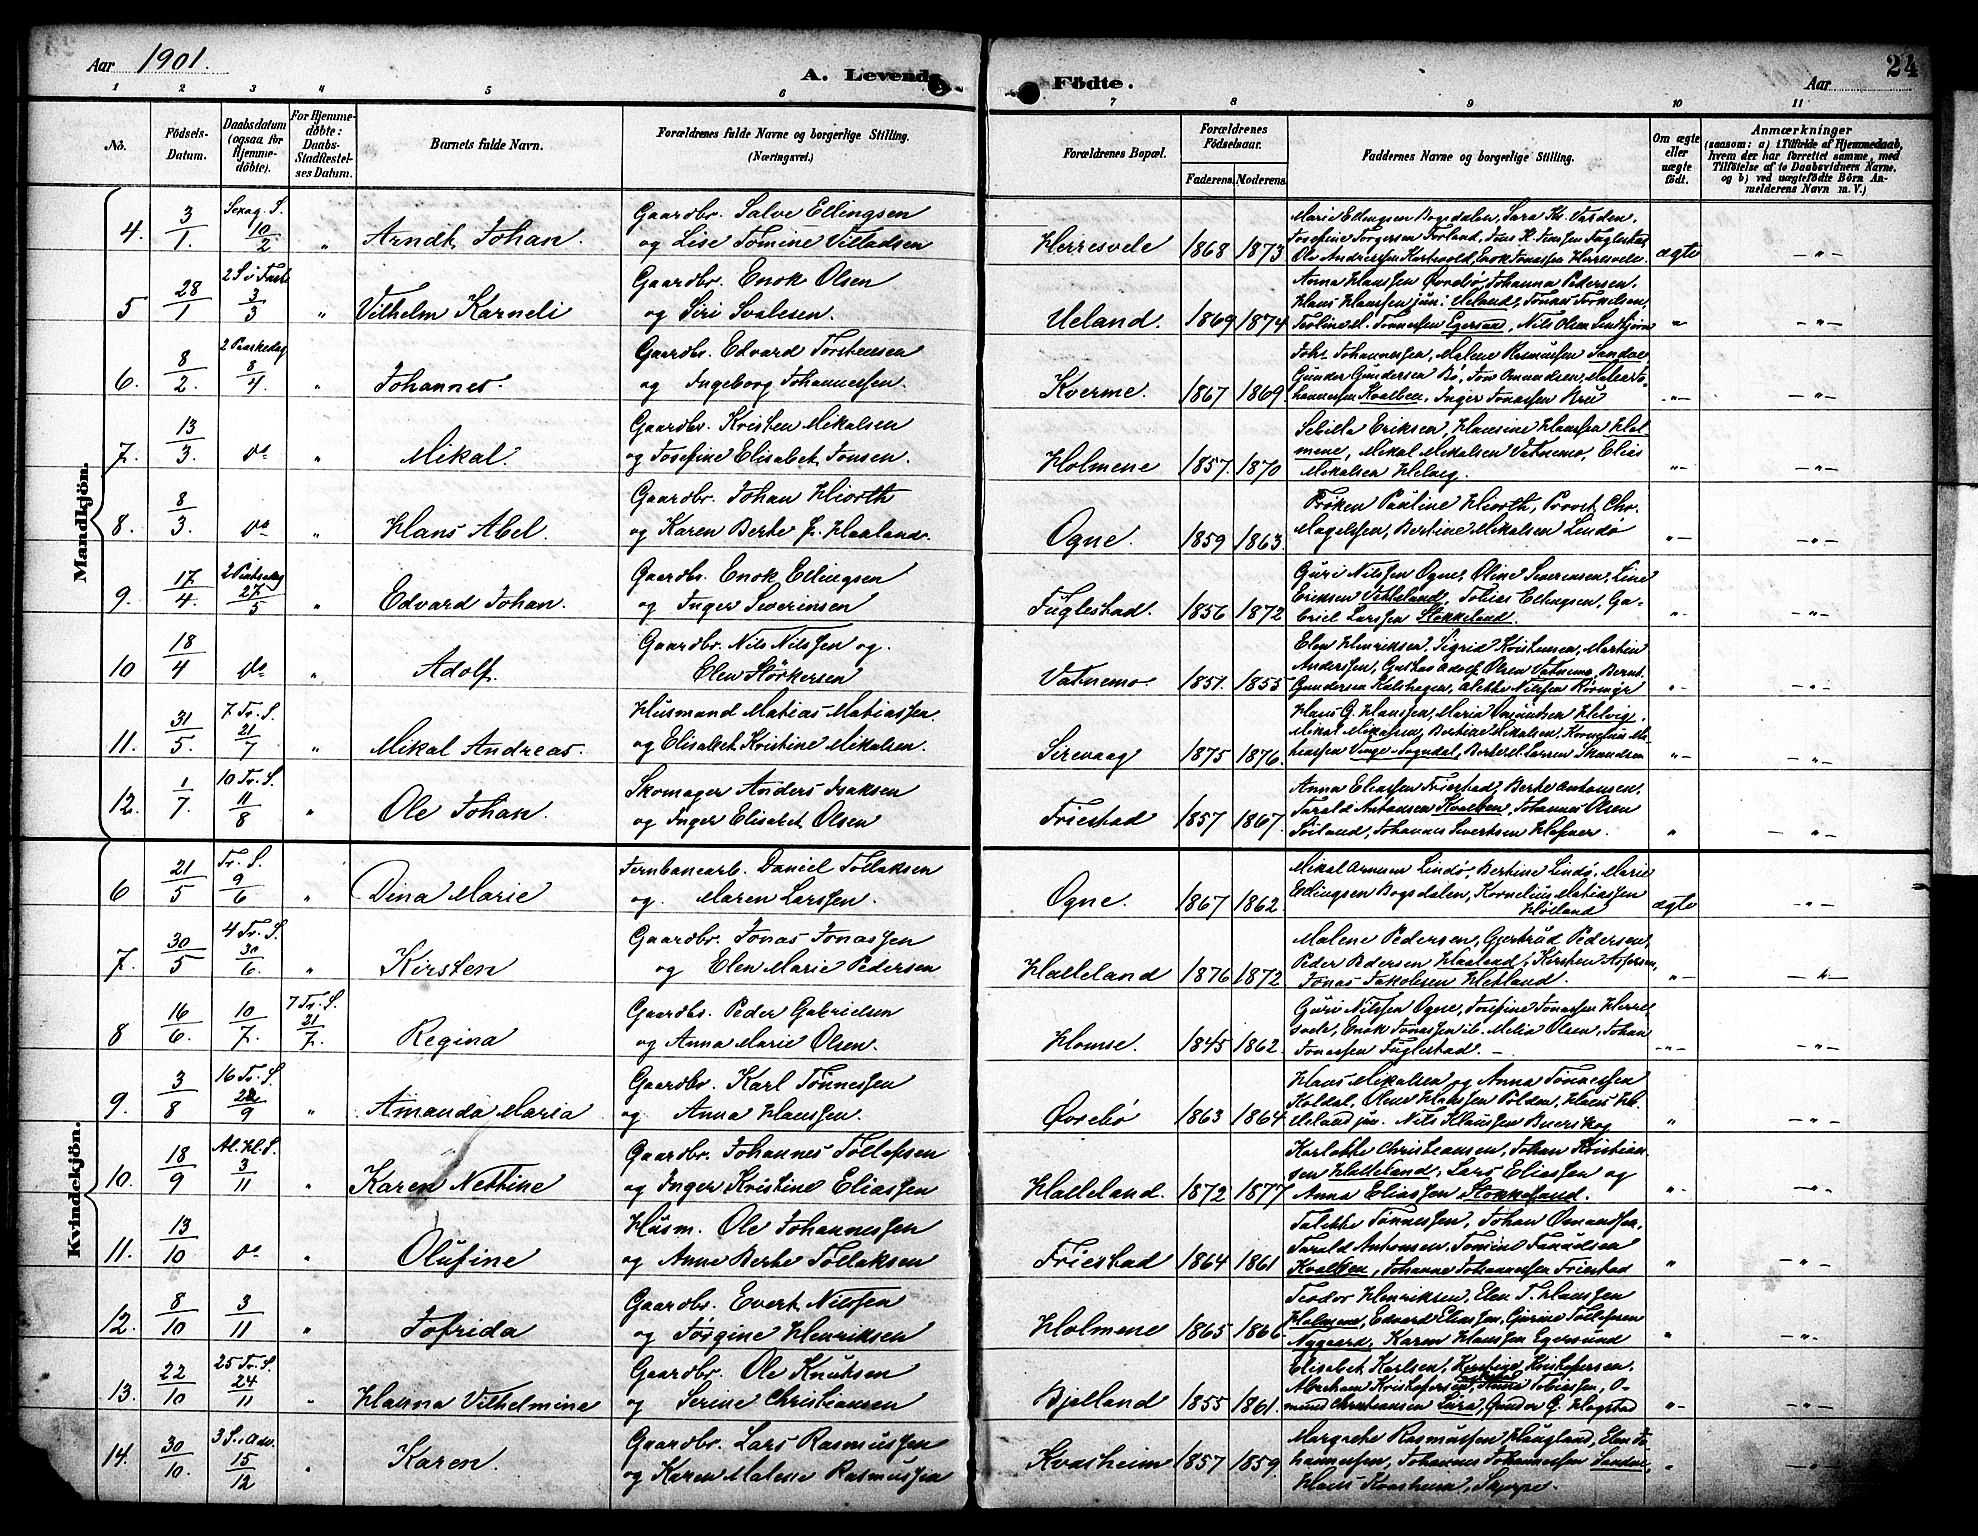 Aar 1901.
A. Levende Födte.
24
Aar
1 2 3 4 5 6 7 8 9 10 11
No.
Födsels-Datum.
Daabsdatum (ogsaa for Hjemme-döbte).
For Hjemme-döbte: Daabs-Stadfæstel-ses Datum.
Barnets fulde Navn.
Forældrenes fulde Navne og borgerlige Stilling. (Næringsvei.)
Forældrenes Bopæl.
Forældrenes Födselsaar.
Faderens. Moderens.
Faddernes Navne og borgerlige Stilling.
Om ægte eller uægte födt.
Anmærkninger
(saasom: a) i Tilfælde af Hjemmedaab, hvem der har forrettet samme, med Tilföielse af to Daabsvidners Navne, og b) ved uægtefödte Börn An-melderens Navn m. V.)
Mandkjön.
4. 3/1. Sexag. S. 10/2 " Arndt Johan. Gaardbr. Salve Ellingsen
og Lise Tomine Villadsen Herresvele 1868 1873 ægte - " -
Marie Ellingsen Bogsdalen, Sara Kr. Varden,
Josefine Torgersen Forland, Jens K. Jenssen Fuglestad
Ole Andreassen Hertvold, Enok Jonassen Herresvele
5 28/1 2 S. i Faste 3/3 " Vilhelm Karneli Gaardbr. Enok Olsen
og Siri Svalesen. Ueland. 1869 1874 " - " -
Anna Hanssen Øvrebö, Johanna Pedersen,
Hans Hanssen jun: Ueland, Tönas Torkelsen
6. 8/2. 2 Paaskedag 8/4. " Johannes. Gaardbr. Edvard Torstensen
og Ingeborg Johannessen. Kverme. 1867 1869 - " - - " -
Johs. Johannessen, Malene Rasmussen Sandve
Gunder Gundersen Bö, Tow Omundsen, Malene Jo-
hannessen Kvalben, Inger Jonassen Bru
7. 13/3. do " Mikal. Gaardbr. Kristen Mikalsen
og Josefine Elisabet Jonsen. Holmene 1857. 1870 - " - - " -
Sebilla Eriksen, Hansine Hanssen Hol-
mene, Mikal Mikalsen Vatnemo, Elias
Mikalsen Helvig.
8. 8/3. do " Hans Abel. Gaardbr. Johan Hiorth
og Karen Berte f. Haaland. Ogne. 1859 1863. - " - - " -
Fröken Pauline Hiorth, Provst Chr.
Magelssen, Bertine Mikalsen Lindö
9. 17/4. 2 Pintsedag 27/5 " Edvard Johan. Gaardbr. Enok Ellingsen
og Inger Severinsen Fuglestad. 1856 1872 " - " -
Guri Nilssen Ogne, Oline Severinsen, Line
Eriksen Vetleland, Tobias Ellingsen, Ga-
briel Larssen Stokkeland.
10 18/4 do " Adolf. Gaardbr. Nils Nilssen og
Elen Störkersen Vatnemo. 1851. 1855 " - - " -
Elen Henriksen, Sigrid Kristensen, Martin
Anderssen, Gustav Adolf Olsen Vatnemo, Bernt
Gundersen Kalshagen, Alette Nilssen Rövmyr
11. 31/5. 7 Tr. S. 21/7 " Mikal Andreas. Husmand Matias Matiassen
og Elisabet Kristine Mikalsen. Sirevaag 1875 1876. " - - " -
Hans G. Hanssen, Maria Omundsen Helvig,
Mikal Mikalsen, Bertine Mikalsen, Kornelius Ma-
12. 1/7. 10 Tr. S. 11/8 " Ole Johan. Skomager Anders Isaksen
og Inger Elisabet Olsen Friestad 1857 1867. " - " -
Anna Eliassen Friestad, Berte Antonsen,
Tarald Antonsen Kvalben, Johannes Olsen
Töiland, Johannes Sivertsen Hafner.
Kvindekjön.
6 21/5 Tr. S. 9/6 " Dina Marie Jernbanearb. Daniel Tollaksen
og. Maren Larssen. Ogne. 1867 1862. ægte - " -
Mikal Aanum Lindö, Bertine Lindö, Marie
Ellingsen Bogsdalen, Kornelius Matiassen
Hölland
7. 30/5 4 Tr. S. 30/6. " Kirsten Gaardbr. Jonas Jonassen
og Elen Marie Pedersen Halleland 1876 1872 " - - " -
Malene Pedersen, Gjertrud Pedersen,
Peder Pedersen Haaland, Kirsten Asfersen,
Jonas Jakobsen Hetland.
8 16/6. 10/7. 7 Tr. S. 21/7. Regina Gaardbr. Peder Gabrielsen
og Anna Marie Olsen. Homse. 1845 1862. - " - - " -
Guri Nilssen Ogne, Josefine Jonassen Herre-
svele, Enok Jonassen ib. Melia Olsen, Johan
Jonassen Fuglestad. -
9. 3/8 16 Tr. S. 22/9 " Amanda Maria Gaardbr. Karl Tönnessen
og Anna Hanssen. Øvrebö 1863 1864 " - " -
Hans Mikalsen og Anna Tönnessen
Koldal, Oline Hanssen Polden, Hans H.
Ueland jun. Nils Klaussen Buerskog
10. 18/9 Al. Hl. S. 3/11 " Karen Nettine Gaardbr. Johannes Tollefsen
og Inger Kristine Eliassen Halleland. 1872 1877 " - - " -
Karlotte Christeansen, Johan Kristian-
sen Halleland, Lars Eliassen og
Anna Eliassen Stokkeland.
11. 13/10 do " Olufine Husm. Ole Johannessen
og Anne Berte Tollaksen Friestad 1864 1861 " - " -
Talette Tönnessen, Johan Omundsen,
Tarald Antonsen, Tomine Taraldsen
Kvalben, Johanne Johannessen Friestad
12. 8/10 3/11 " Tofrida Gaardbr. Evert Nilssen
og Jörgine Henriksen Holmene 1865 1866. " - " -
Teodor Henriksen, Elen T. Hanssen
Holmene, Edvard Eliassen, Gurine Tollefsen
Nygaard, Karen Hanssen Egersund
13. 22/10 25 Tr. S. 24/11 " Hanna Vilhelmine Gaardbr. Ole Knutsen
og Serine Christiansen Bjelland 1855 1861. " - - " -
Elisabet Karlsen, Kristofersen,
Abraham Kristofersen, Tobiassen, O-
mund Christiansen Lura, Gunder G. Hogstad
14. 30/10. 3 S. i Adv. 15/12 " Karen. Gaardbr. Lars Rasmussen
og Karen Malene Rasmussen Kvasheim 1857 1859. " - " -
Margrete Rasmussen Haugland, Elen Jo-
hannessen, Johannes Johannessen Sandve,
Hans Kvasheim,